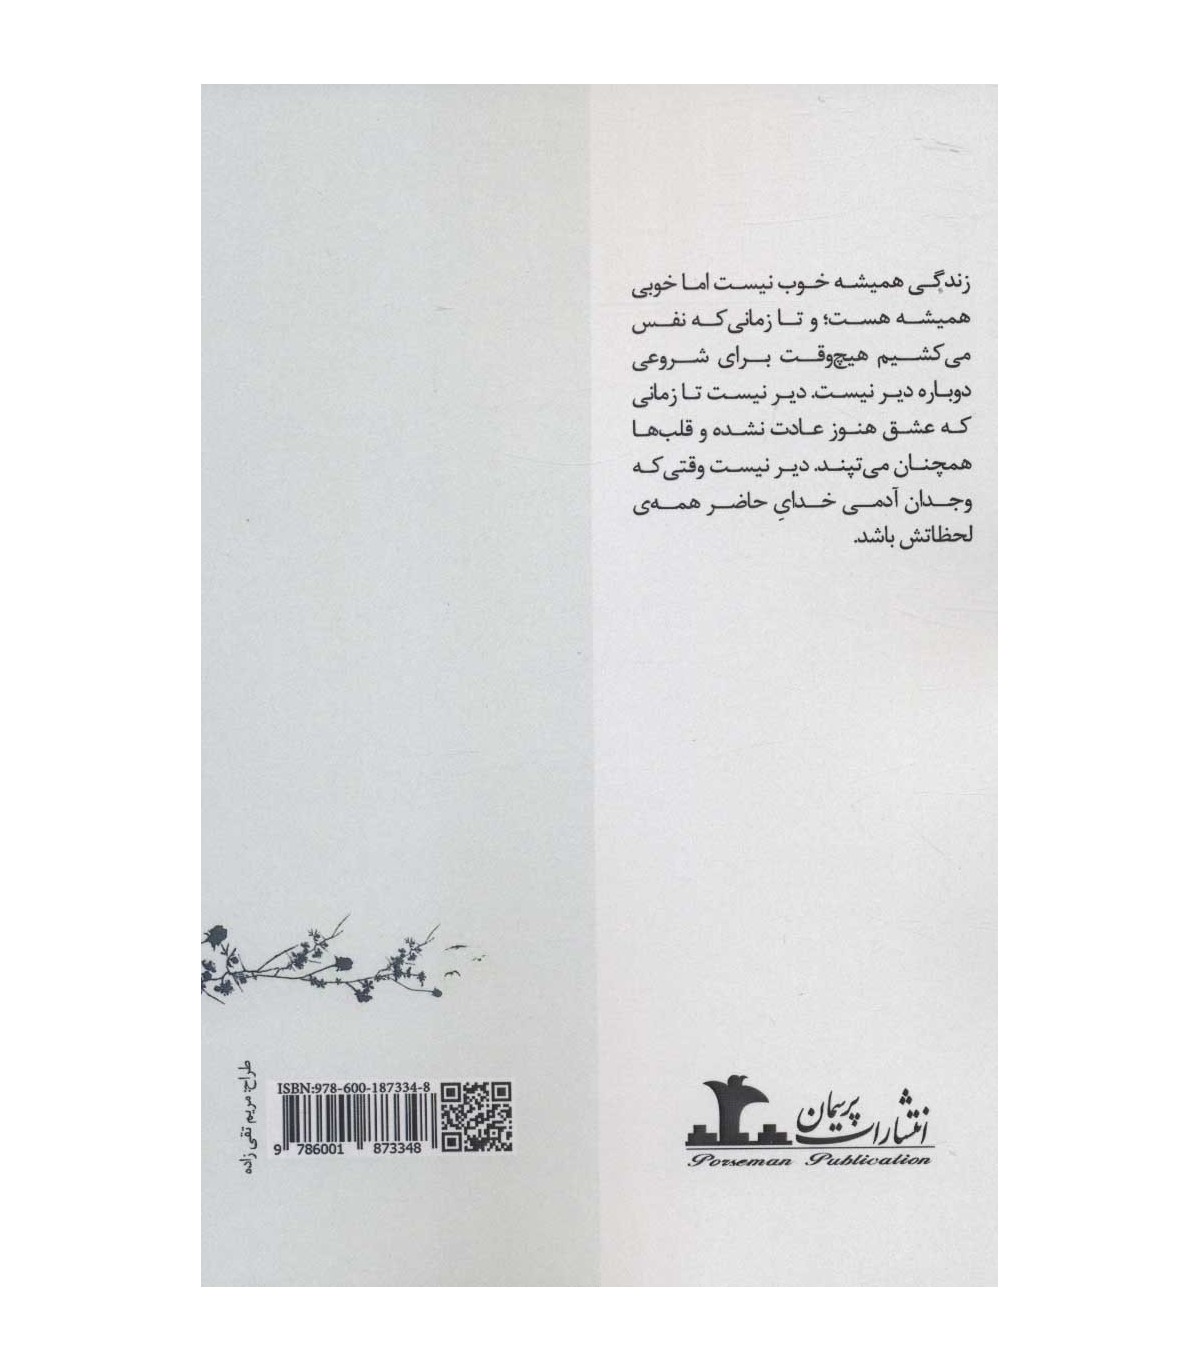 زندگی همیشه خوب نیست اما خوبی
همیشه هست؛ و تا زمانی‌که نفس
می‌کشیم هیچ‌وقت برای شروعی
دوباره دیر نیست. دیر نیست تا زمانی
که عشق هنوز عادت نشده و قلب‌ها
همچنان می‌تپند. دیر نیست وقتی‌که
وجدان آدمی خدایِ حاضر همه‌ی
لحظاتش باشد.
انتشارات پرسمان
Porseman Publication
ISBN:978-600-187334-8
9 786001 873348
طراح: مریم تقی زاده